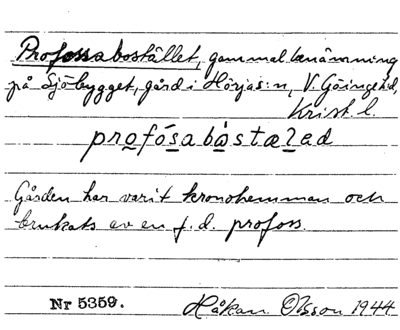 Profossabostället, gammal benämning
på Sjöbygget, gård i Hörjas:n, V. Göingehd,
Krist. l.
profósabåstæled
Gården har varit kronohemman och
brukats av en f.d. profoss.
Nr 5359. Håkan Olsson 1944